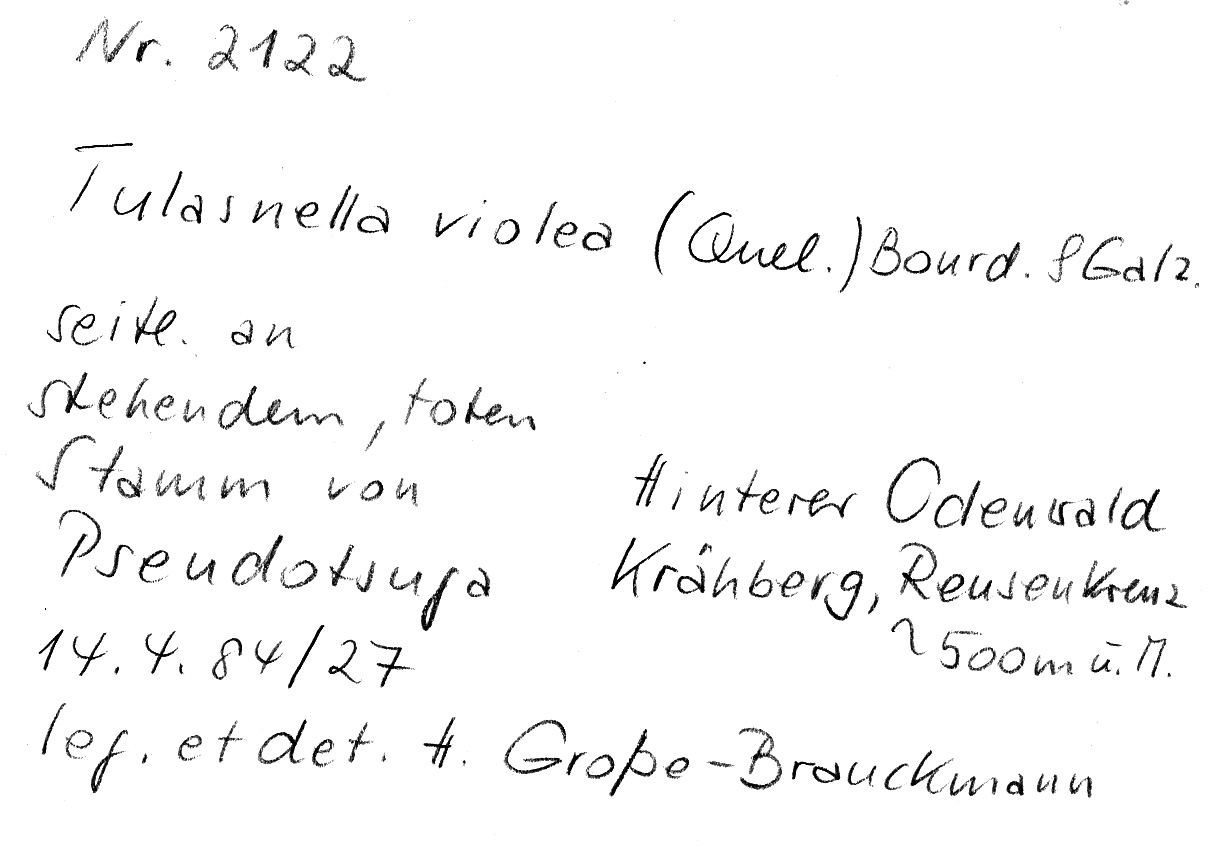 Nr. 2122
Tulasnella violea (Quel.) Bourd. & Galz.
seitl. an
stehendem, toten
Stamm von
Pseudotsuga
14.4.84/27
Hinterer Odenwald
Krähberg, Reusenkreuz
~500m ü.M.
leg. et det. H. Große-Brauckmann